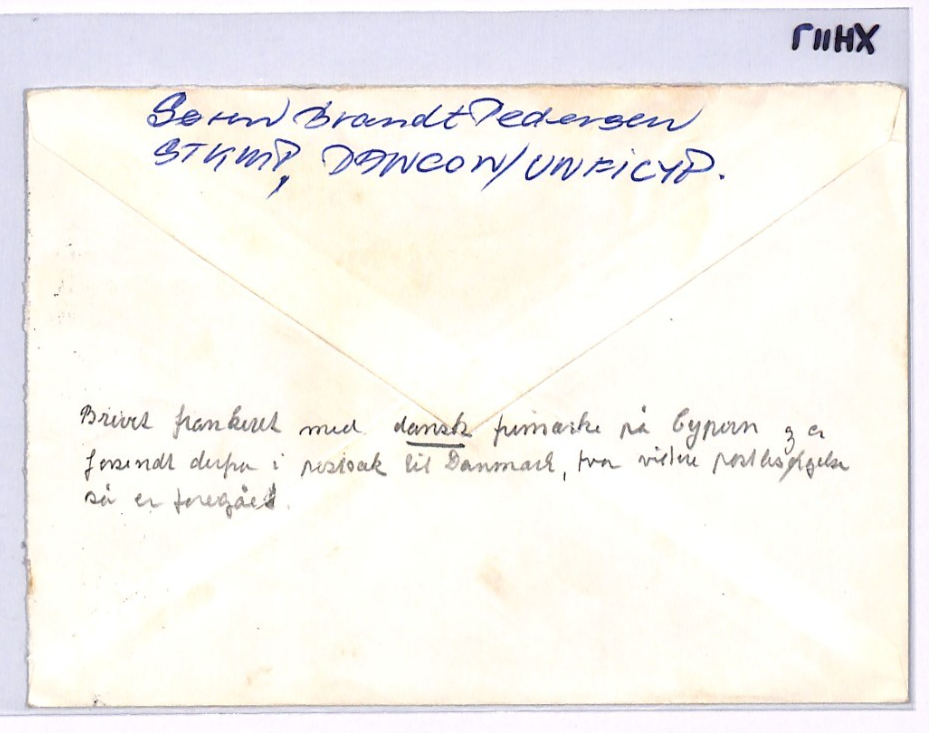 ГIIHX
Søren Brandt Pedersen
STKMP, DANCON/UNFICYP.
Brevet frankeret med dansk frimærke på Cypern og er
forsendt derfra i postsæk til Danmark, hvor videre postbesørgelse
så er foregået.